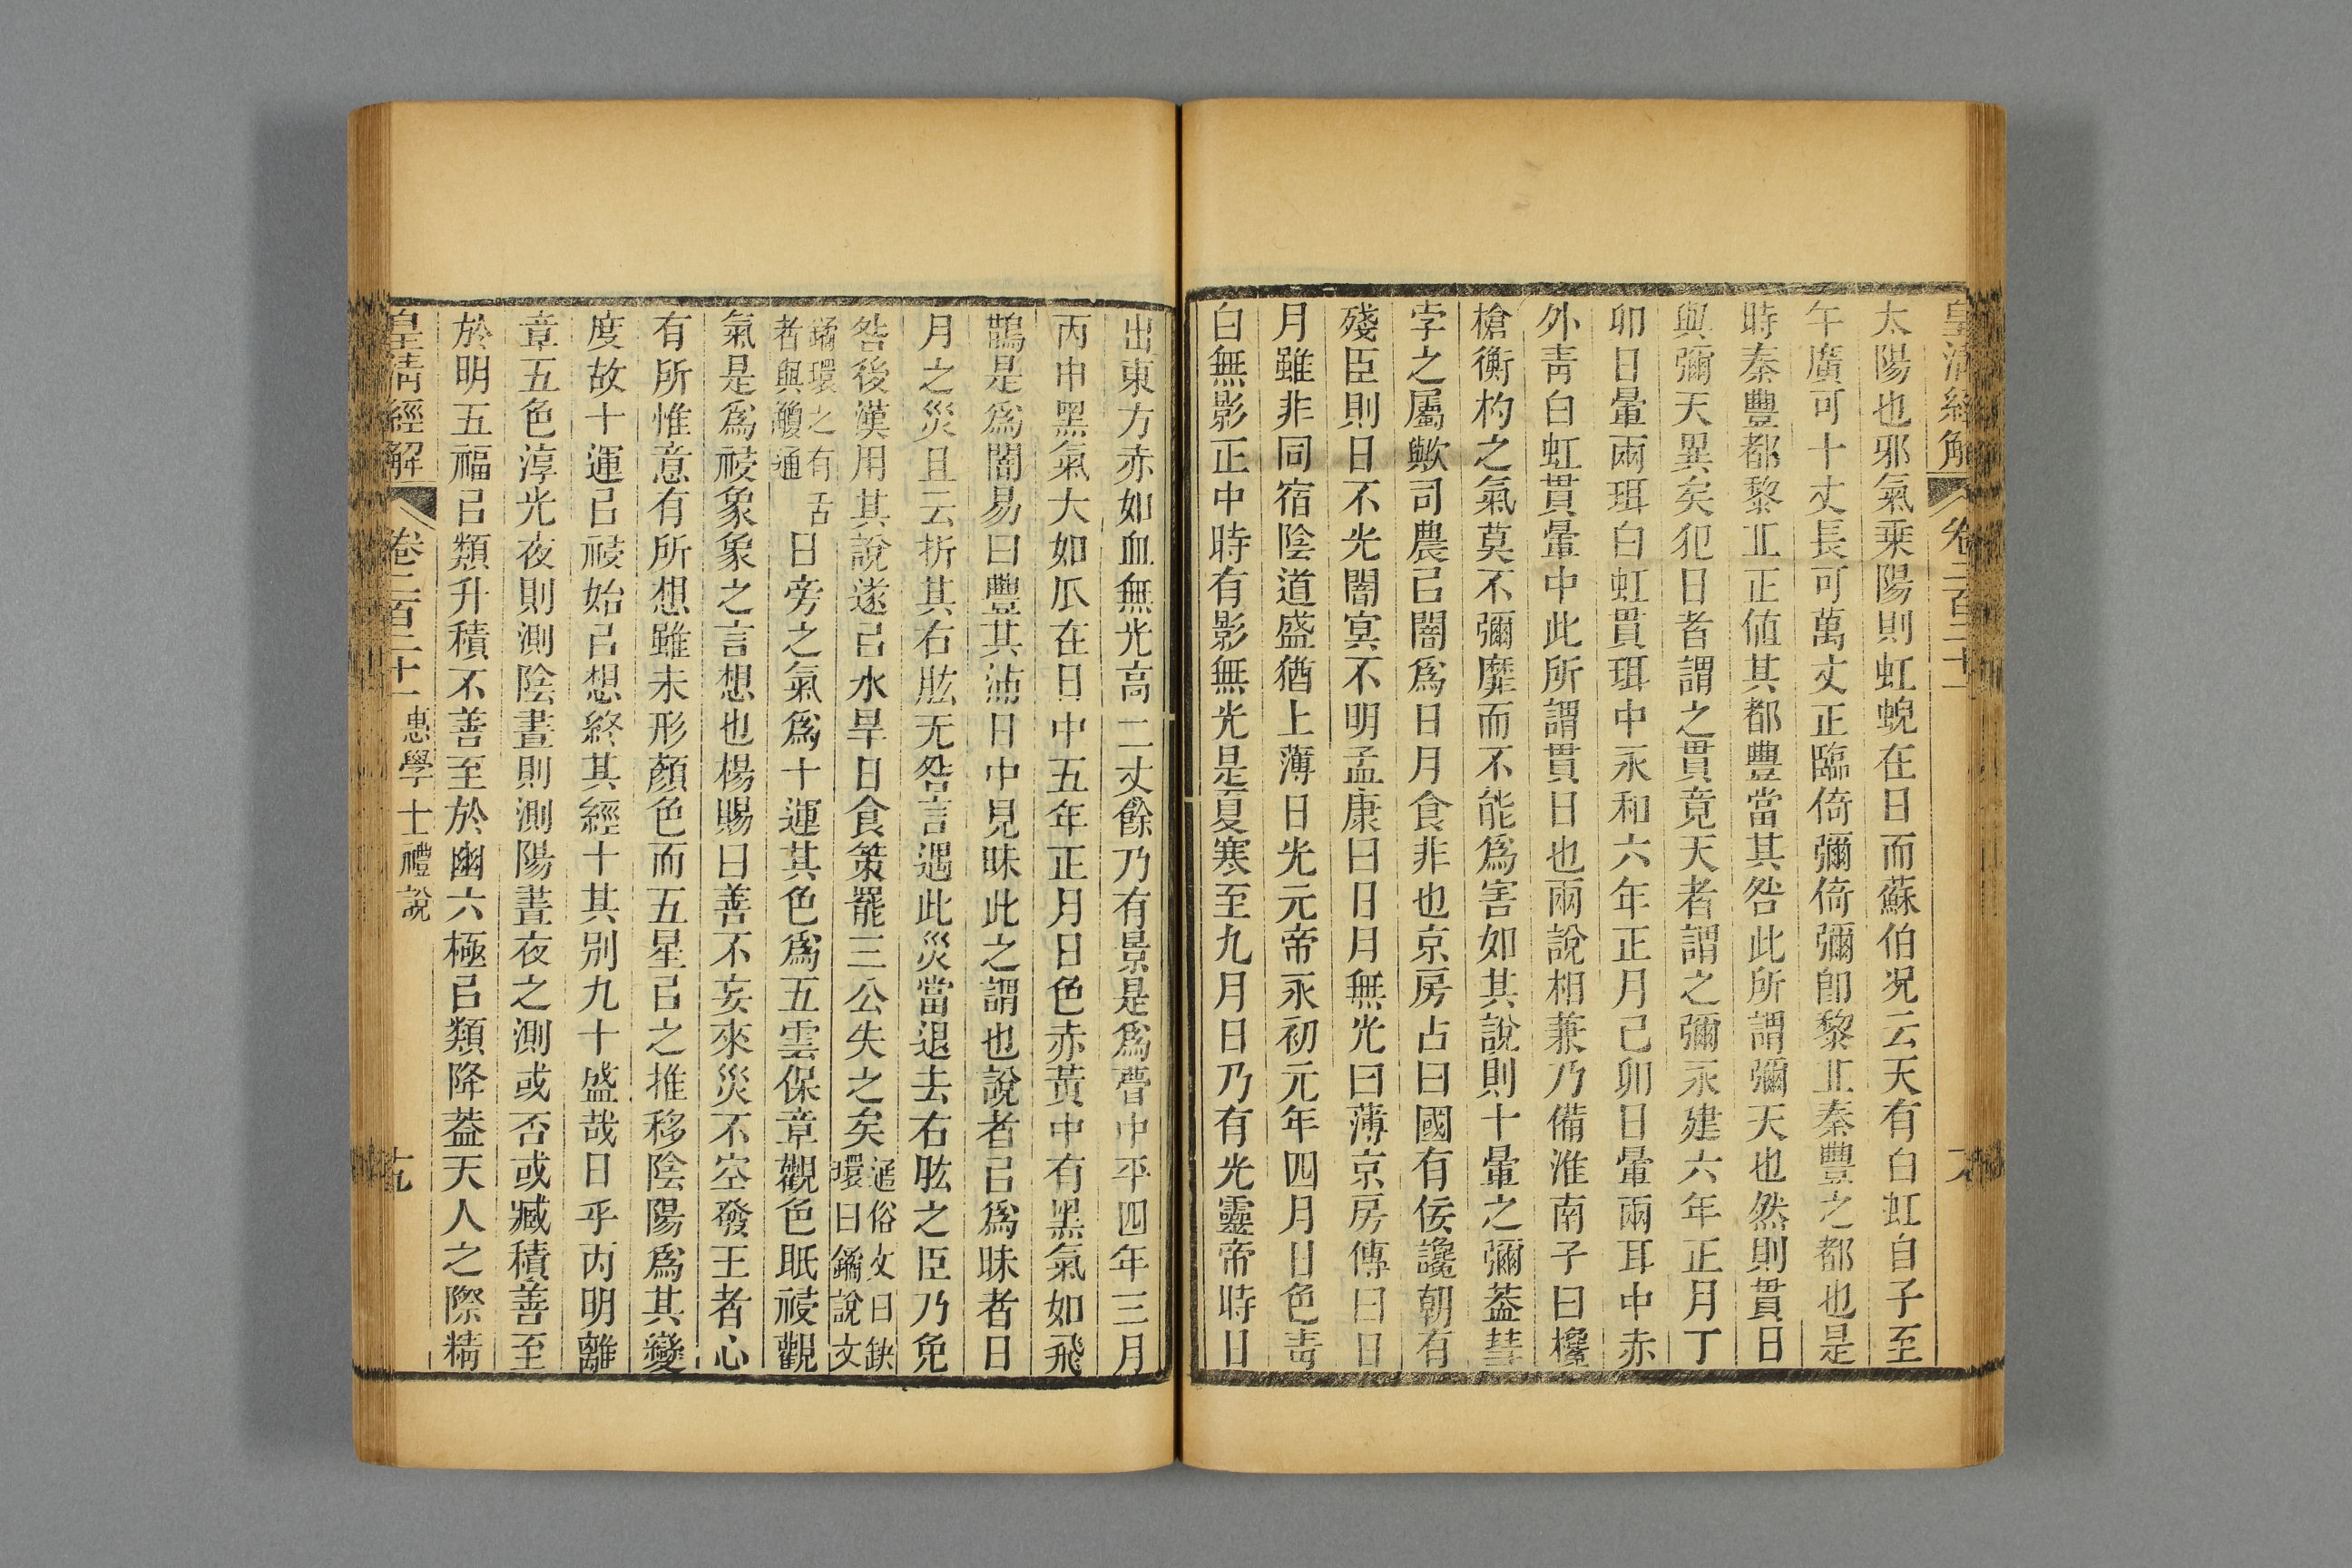 皇清經解 卷二百二十一
太陽也邪氣乘陽則虹蜺在日而蘇伯况云天有白虹自子至
午廣可十丈長可萬丈正臨倚彌倚彌卽黎丘秦豐之都也是
時秦豐都黎丘正值其都豐當其咎此所謂彌天也然則貫日
與彌天異矣犯日者謂之貫竟天者謂之彌永建六年正月丁
卯日暈兩珥白虹貫珥中永和六年正月己卯日暈兩耳中赤
外靑白虹貫暈中此所謂貫日也兩說相兼乃備淮南子曰欃
槍衡杓之氣莫不彌靡而不能爲害如其說則十暈之彌葢彗
孛之屬歟司農㠯闇爲日月食非也京房占曰國有佞讒朝有
殘臣則日不光闇冥不明孟康曰日月無光曰薄京房傳曰日
月雖非同宿陰道盛猶上薄日光元帝永初元年四月日色靑
白無影正中時有影無光是夏寒至九月日乃有光靈帝時日
出東方赤如血無光高二丈餘乃有景是爲瞢中平四年三月
丙申黑氣大如瓜在日中五年正月日色赤黃中有黑氣如飛
鵲是爲闇易曰豐其沛日中見昧此之謂也說者㠯爲昧者日
月之災且云折其右肱无咎言遇此災當退去右肱之臣乃免
咎後漢用其說遂㠯水旱日食策罷三公失之矣通俗文曰缺
環曰鐍說文
鐍環之有舌
者與觼通日旁之氣爲十運其色爲五雲保章觀色眂祲觀
氣是爲祲象象之言想也楊賜曰善不妄來災不空發王者心
有所惟意有所想雖未形顏色而五星㠯之推移陰陽爲其變
度故十運㠯祲始㠯想終其經十其別九十盛哉日乎丙明離
章五色淳光夜則測陰晝則測陽晝夜之測或否或臧積善至
於明五福㠯類升積不善至於幽六極㠯類降葢天人之際精
皇清經解 卷二百二十一 惠學士禮說 九